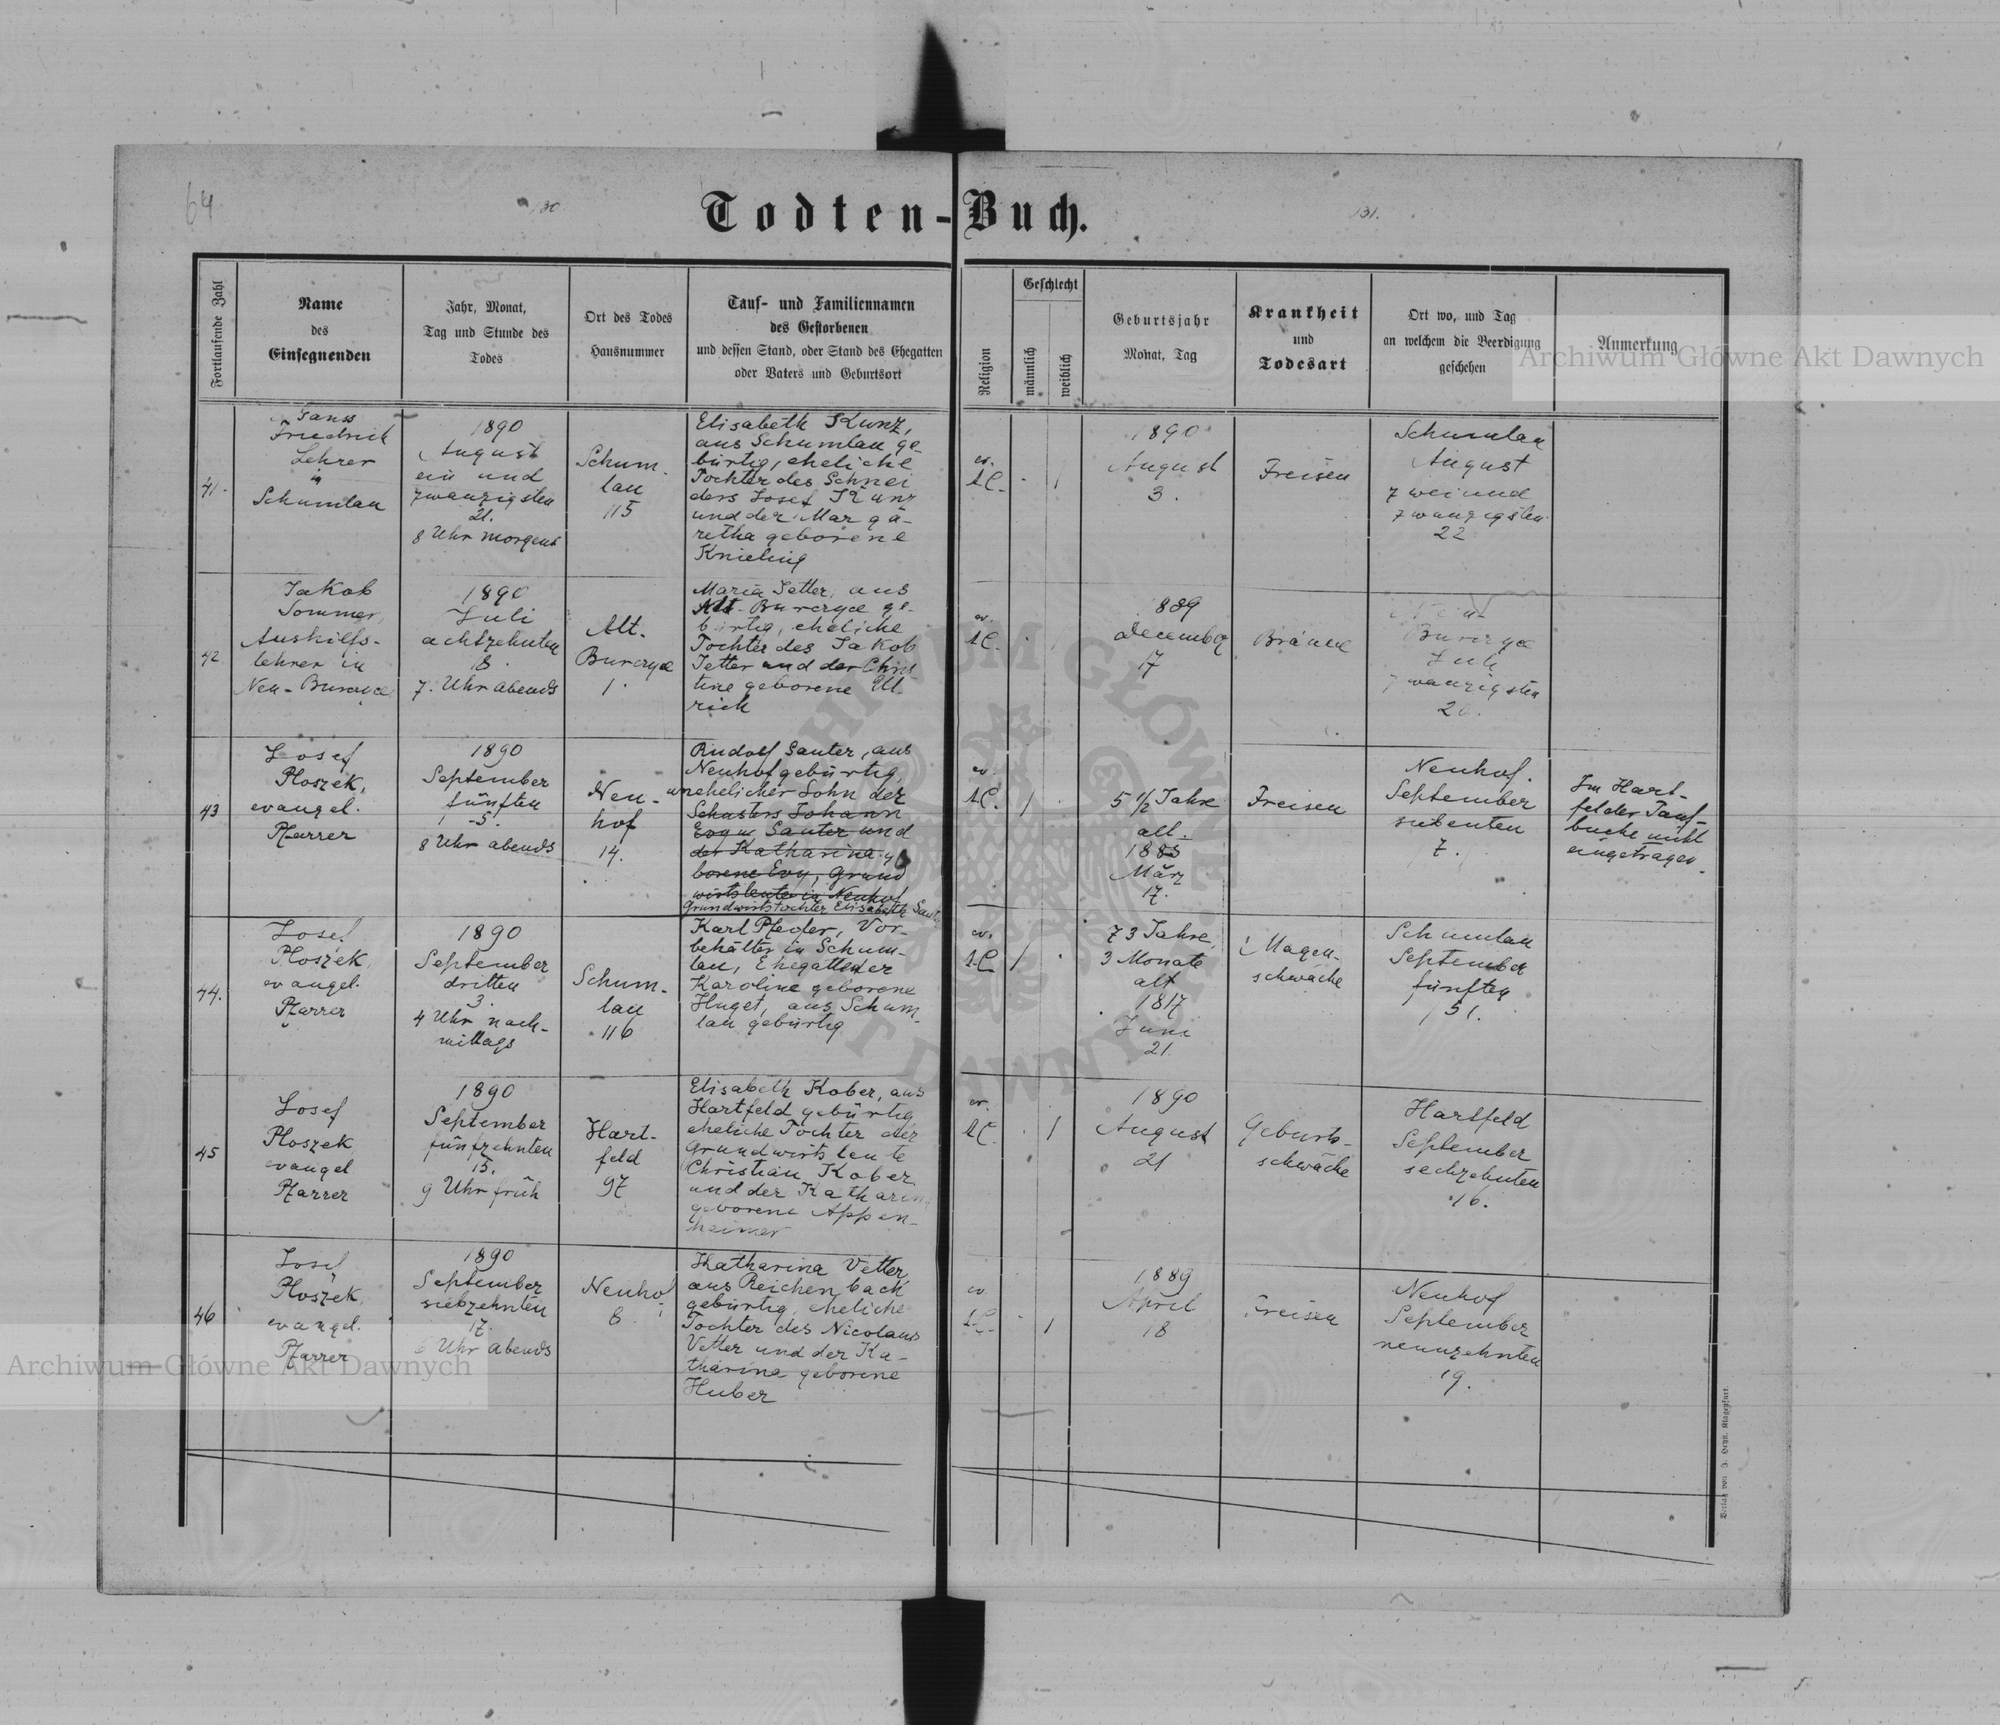 64
130.
131.
Todten-Buch.
Fortlaufende Zahl
Name
des
Einsegnenden
Jahr, Monat,
Tag und Stunde des
Todes
Ort des Todes
Hausnummer
Tauf- und Familiennamen
des Gestorbenen
und dessen Stand, oder Stand des Ehegatten
oder Vaters und Geburtsort
Religion
Geschlecht
männlich
weiblich
Geburtsjahr
Monat, Tag
Krankheit
und
Todesart
Ort wo, und Tag
an welchem die Beerdigung
geschehen
Anmerkung
Archiwum Główne Akt Dawnych
41.
Ganss
Friedrich
Lehrer
in
Schumlau
1890
August
ein und
zwanzigsten
21.
8 Uhr morgens
Schum-
lau
115
Elisabeth Kunz,
aus Schumlau ge-
bürtig, eheliche
Tochter des Schnei
ders Josef Kunz
und der Marga-
retha geborene
Knieling
ev.
A.C.
1
1890
August
3.
Freisen
Schumlau
August
zwei und
zwanzigsten
22
42
Jakob
Sommer,
Aushilfs-
lehrer in
Neu-Burczyce
1890
Juli
achtzehnten
18.
7. Uhr abends
Alt-
Burczyce
1.
Maria Jetter, aus
Alt-Burczyce ge-
bürtig, eheliche
Tochter des Jakob
Jetter und der Chris
tine geborene Ul-
rich
ev.
A.C.
1
889
december
17
Bräune
Burczyce
Juli
zwanzigsten
20.
43
Josef
Ploszek,
evangel.
Pfarrer
1890
September
fünften
5.
8 Uhr abends
Neu-
hof
14.
Rudolf Sauter, aus
Neuhof gebürtig,
unehelicher Sohn der
Schusters Johann
Evg Sauter und
der Katharina ge
borene Evy, Grund
wirtsleute in Neuhof
Grundwirtstochter Elisabeth Saut
ev.
A.C.
1
5 1/2 Jahre
alt.
1885
März
17.
Freisen
Neuhof.
September
siebenten
7.
Im Hart-
felder Tauf-
buche nicht
eingetragen.
44.
Josef
Ploszek
evangel.
Pfarrer
1890
September
dritten
3.
4 Uhr nach-
mittags
Schum-
lau
116
Karl Pfeifer, Vor-
behälter in Schum-
lau, Ehegatte der
Karoline geborene
Huget, aus Schum-
lau gebürtig
ev.
A.C.
1
73 Jahre,
3 Monate
alt
1817
Juni
21.
Magen-
schwäche
Schumlau
September
fünften
5.
45
Josef
Ploszek
evangel
Pfarrer
1890
September
fünfzehnten
15.
9 Uhr früh
Hart-
feld
97
Elisabeth Kober, aus
Hartfeld gebürtig
eheliche Tochter der
Grundwirtsleute
Christian Kober
und der Katharin
geborene Appen-
heimer
ev.
A.C.
1
1890
August
21
Geburts-
schwäche
Hartfeld
September
sechzehnten
16.
46
Josef
Ploszek
evangel.
Pfarrer
1890
September
siebzehnten
17.
Uhr abends
Neuhof
8
Katharina Vetter
aus Reichenbach
gebürtig, eheliche
Tochter des Nicolaus
Vetter und der Ka-
tharina geborene
Huber
ev
A.C.
1
1889
April
18
Freisen
Neuhof
September
neunzehnten
19.
Archiwum Główne Akt Dawnych
ARCHIWUM GŁÓWNE AKT DAWNYCH
Verlag von J. Heyn, Klagenfurt.